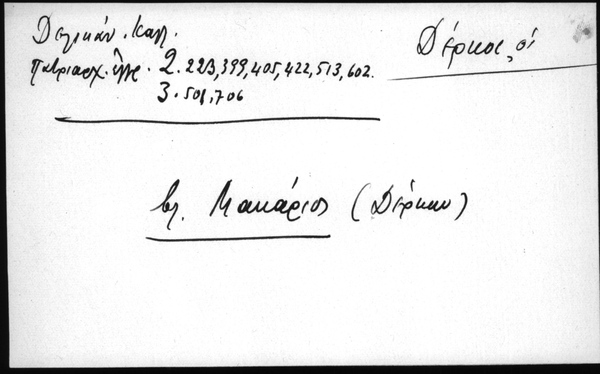 Δέρκοι, οἱ
Δελικάν. Καλλ.
Πατριαρχ. ἔγγρ. 2. 223, 399, 405, 422, 513, 602.
3. 501, 706
βλ. Μακάριος (Δέρκων)